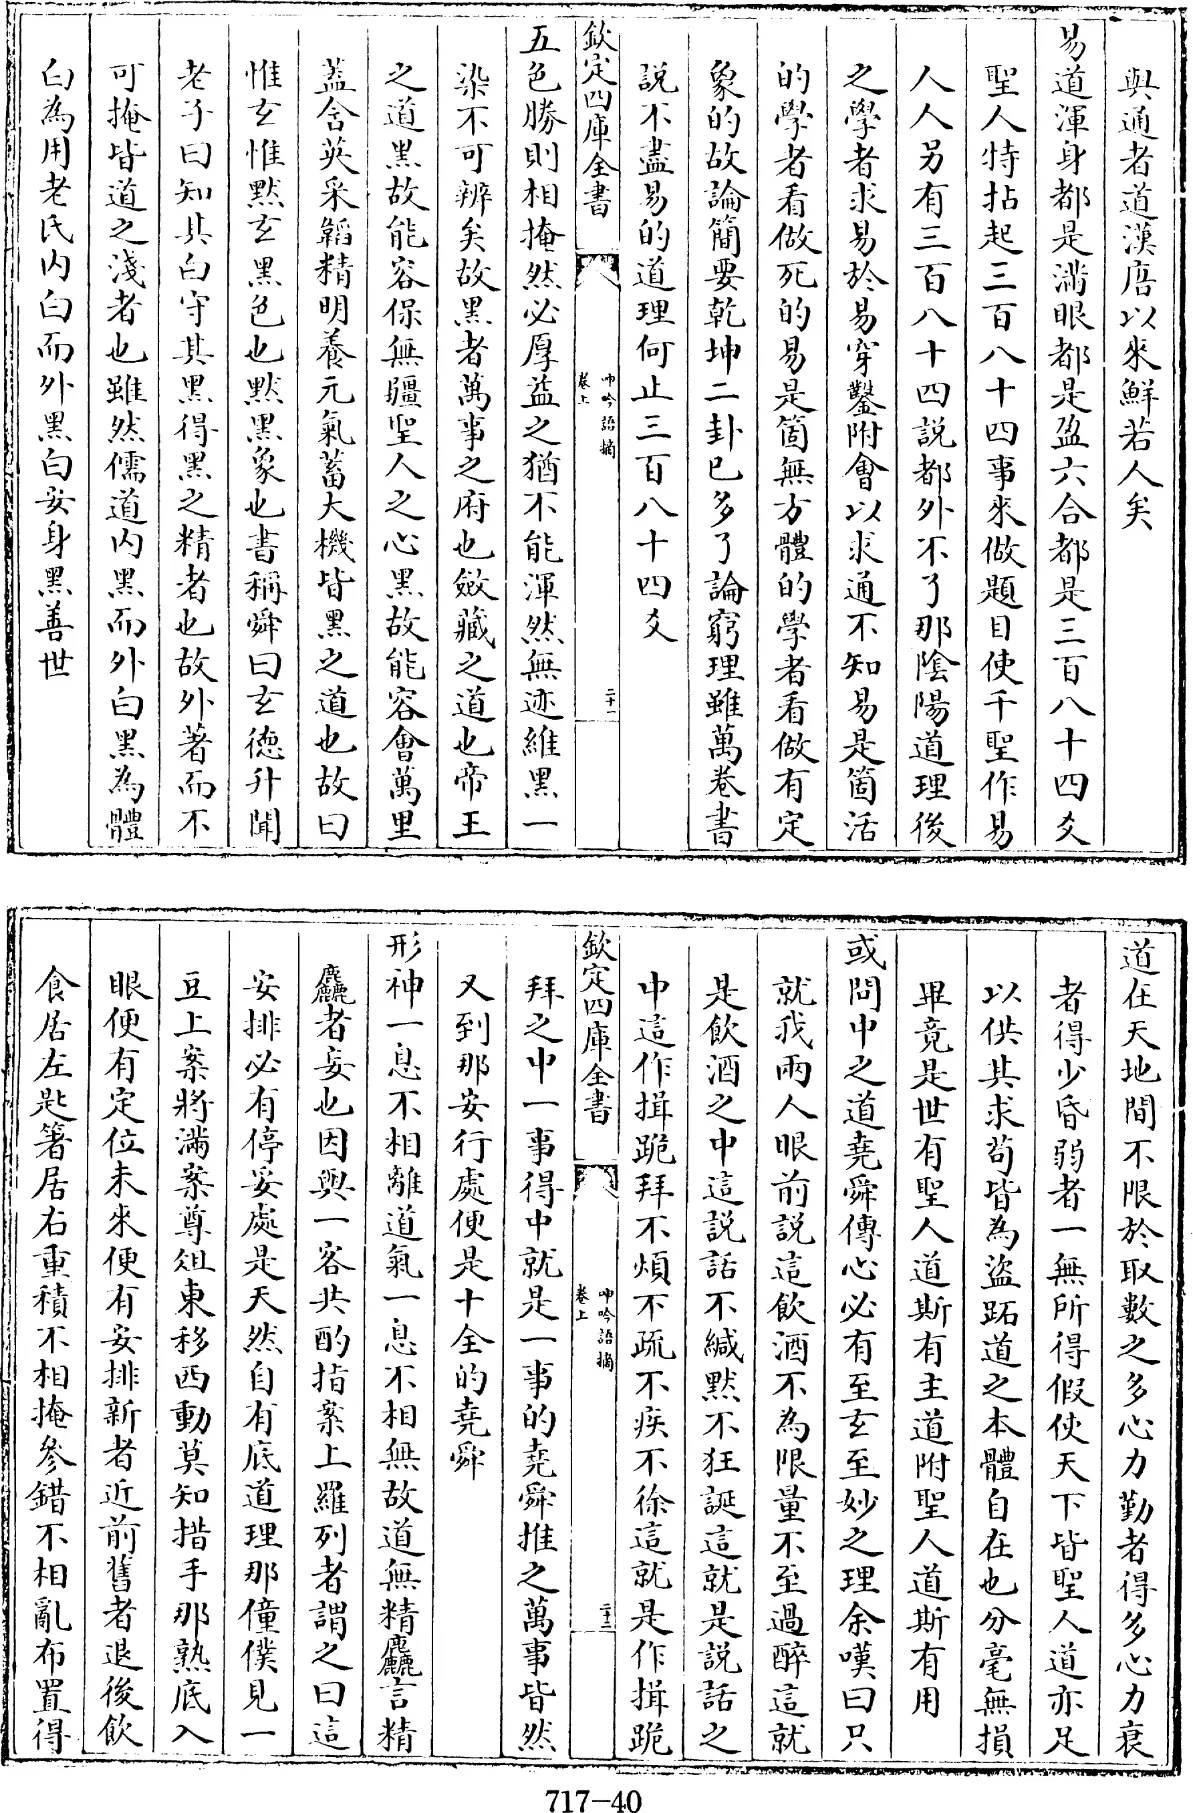 與通者道漢唐以來鮮若人矣
易道渾身都是滿眼都是盈六合都是三百八十四爻
聖人特拈起三百八十四事來做題目使千聖作易
人人另有三百八十四説都外不了那陰陽道理後
之學者求易於易穿鑿附會以求通不知易是箇活
的學者看做死的易是箇無方體的學者看做有定
象的故論簡要乾坤二卦已多了論窮理雖萬卷書
説不盡易的道理何止三百八十四爻
欽定四庫全書
呻吟語摘
卷上
二十一
五色勝則相掩然必厚益之猶不能渾然無迹維黑一
染不可辨矣故黑者萬事之府也斂藏之道也帝王
之道黑故能容保無疆聖人之心黑故能容會萬里
葢含英采韜精明養元氣蓄大機皆黑之道也故曰
惟玄惟黙玄黑色也黙黑象也書稱舜曰玄德升聞
老子曰知其白守其黑得黑之精者也故外著而不
可掩皆道之淺者也雖然儒道内黑而外白黑為體
白為用老氏内白而外黑白安身黑善世
道在天地間不限於取數之多心力勤者得多心力衰
者得少昏弱者一無所得假使天下皆聖人道亦足
以供其求茍皆為盜跖道之本體自在也分毫無損
畢竟是世有聖人道斯有主道附聖人道斯有用
或問中之道堯舜傳心必有至玄至妙之理余嘆曰只
就我兩人眼前說這飲酒不為限量不至過醉這就
是飲酒之中這説話不緘黙不狂誕這就是説話之
中這作揖跪拜不煩不疏不疾不徐這就是作揖跪
欽定四庫全書
呻吟語摘
卷上
二十二
拜之中一事得中就是一事的堯舜推之萬事皆然
又到那安行處便是十全的堯舜
形神一息不相離道氣一息不相無故道無精麤言精
麤者妄也因與一客共酌指案上羅列者謂之曰這
安排必有停妥處是天然自有底道理那僮僕見一
豆上案將滿案尊俎東移西動莫知措手那熟底入
眼便有定位未來便有安排新者近前舊者退後飲
食居左匙箸居右重積不相掩參錯不相亂布置得
717-40